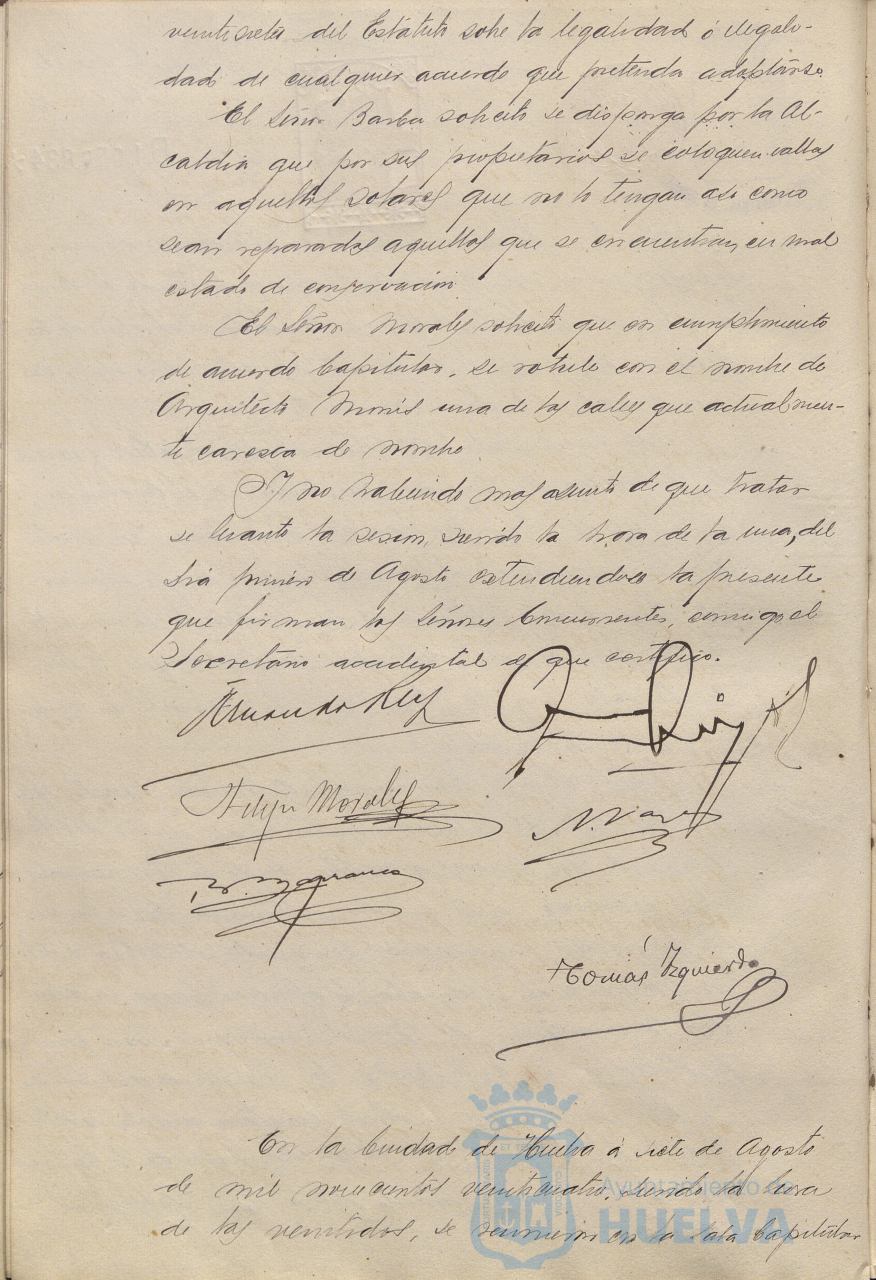 veintisiete del Estatuto sobre la legalidad ó ilegali-
dad de cualquier acuerdo que pretenda adoptarse.
El Señor Barba solicitó se disponga por la Al-
caldia que por sus propietarios se coloquen vallas
en aquellos solares que no lo tengan asi como
sean reparadas aquellas que se encuentran en mal
estado de conservacion.
El Señor Morales solicitó que en cumplimiento
de acuerdo Capitular, se rotule con el nombre de
Arquitecto Monís una de las calles que actualmen-
te caresca de nombre.
Y no habiendo mas asunto de que tratar
se levantó la sesion, siendo la hora de la una, del
dia primero de Agosto estendiendose la presente
que firman los Señores Concurrentes, conmigo el
Secretario accidental de que certifico.
Felipe Morales
N. Vazquez
Tomás Izquierdo
En la Ciudad de Huelva á siete de Agosto
de mil novecientos veinticuatro, siendo la hora
de las veintidos, se reunieron en la Sala Capitular
Ayuntamiento de
HUELVA